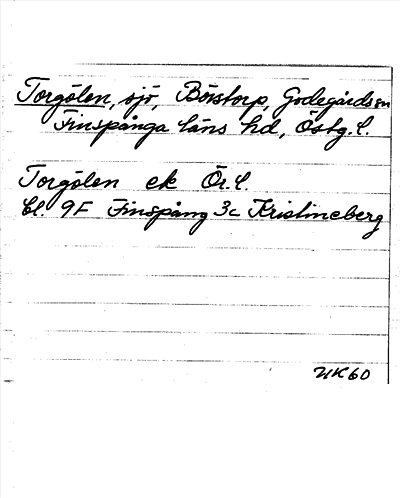 Torgölen, sjö, Börstorp, Godegårds sn
Finspånga läns hd, Östg. l.
Torgölen ek Ör. l.
bl. 9F Finspång 3c Kristineberg
UK60